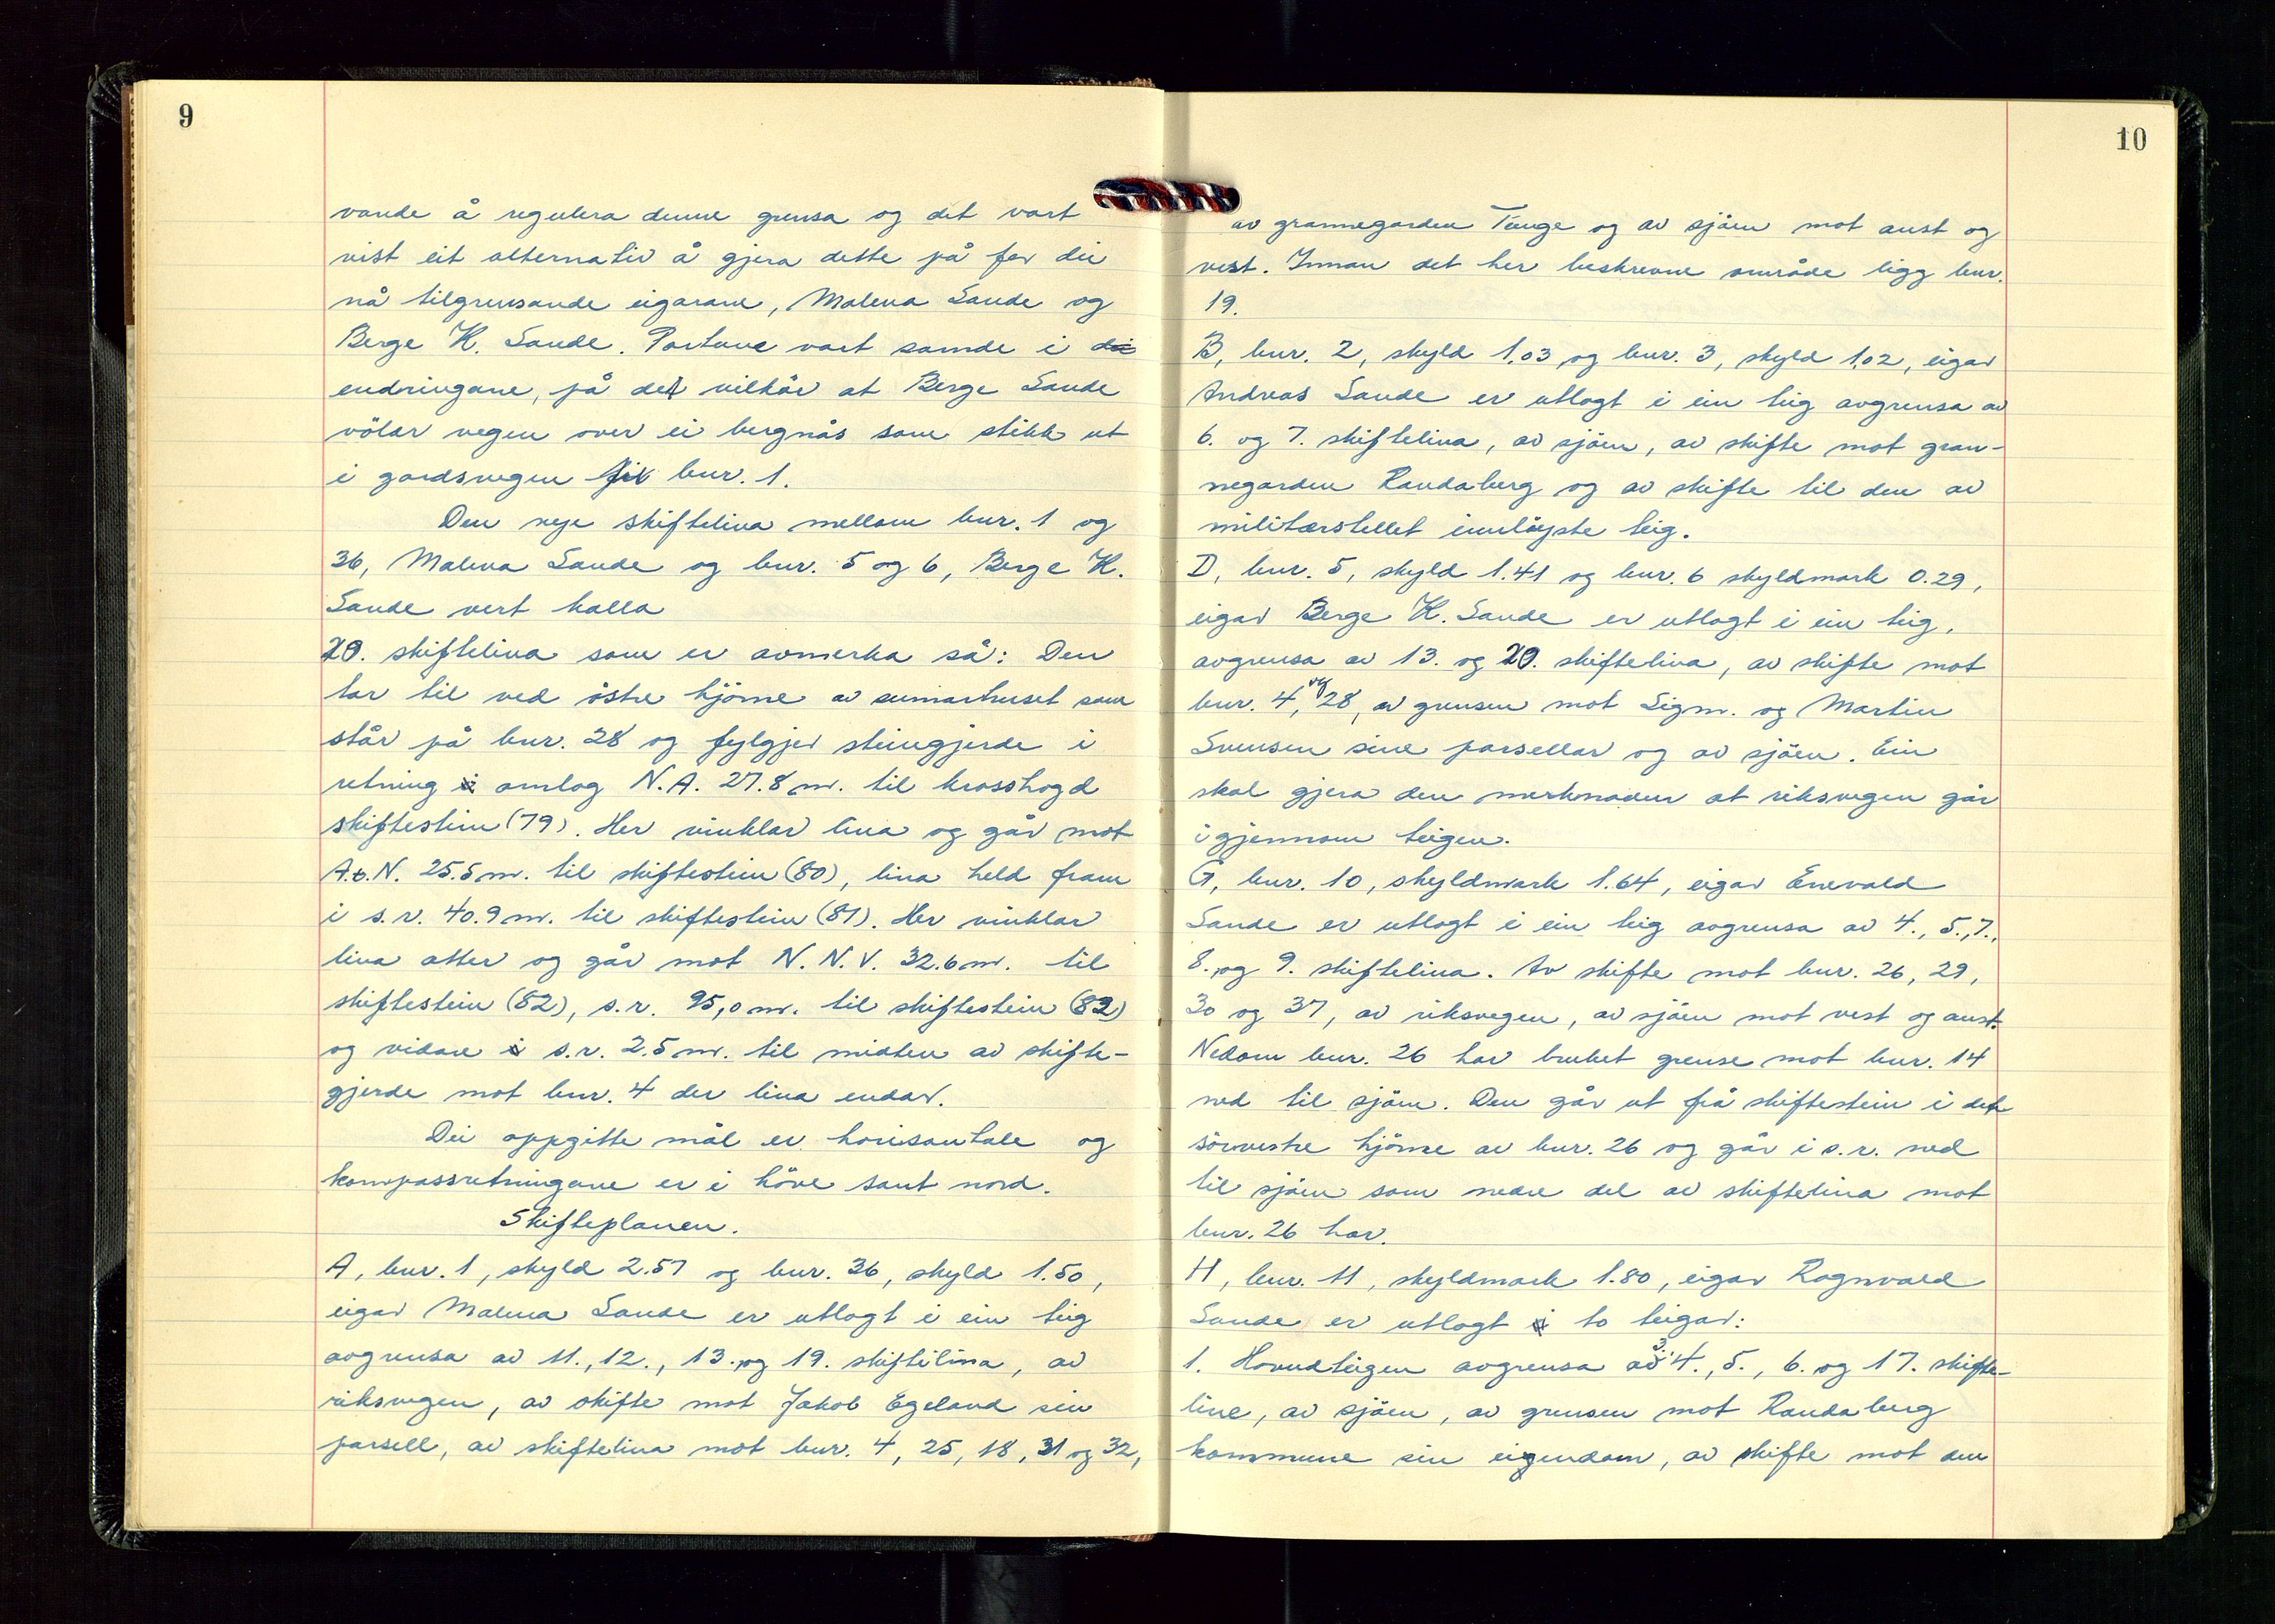 9
vande å regulera denne grensa og det vart
vist eit alternativ å gjera dette på for dei
nå tilgrensande eigarane, Malena Sande og
Berge K. Sande. Partane vart samde i dei
endringane, på det vilkår at Berge Sande
völar vegen over ei bergnås som stikk ut
i gardsvegen til bnr. 1.
Den nye skiftelina mellom bnr. 1 og
36, Malena Sande og bnr. 5 og 6, Berge K.
Sande vert kalla
20. skiftelina som er avmerka så: Den
tar til ved östre hjörne av sumarhuset som
står på bnr. 28 og fylgjer steingjerde i
retning i omlag N.A. 27.8 m. til krosshogd
skiftestein (79). Her vinklar lina og går mot
A.t.N. 25.5 m. til skiftestein (80), lina held fram
i s.r. 40.9 m. til skiftestein (81). Her vinklar
lina atter og går mot N.N.V. 32.6 m. til
skiftestein (82), s.r. 95,0 m. til skiftestein (83)
og vidare i s.r. 2.5 m. til midten av skifte-
gjerde mot bnr. 4 der lina endar.
Dei oppgitte mål er horisontale og
kompassretningane er i höve sant nord.
Skifteplanen.
A, bnr. 1, skyld 2.57 og bnr. 36, skyld 1.50,
eigar Malena Sande er utlagt i ein teig
avgrensa av 11., 12., 13. og 19. skiftelina, av
riksvegen, av skifte mot Jakob Egeland sin
parsell, av skiftelina mot bnr. 4, 25, 18, 31 og 32,
10
av grannegarden Tunge og av sjöen mot aust og
vest. Innan det her beskrevne område ligg bnr.
19.
B, bnr. 2, skyld 1,03 og bnr. 3, skyld 1,02, eigar
Andreas Sande er utlagt i ein teig avgrensa av
6. og 7. skiftelina, av sjöen, av skifte mot gran-
negarden Randaberg og av skifte til den av
militærstellet innlöyste teig.
D, bnr. 5, skyld 1.41 og bnr. 6 skyldmark 0.29,
eigar Berge K. Sande er utlagt i ein teig,
avgrensa av 13. og 20. skiftelina, av skifte mot
bnr. 4, og 28, av grensen mot Sigm. og Martin
Svensen sine parsellar og av sjöen. Ein
skal gjera den merknaden at riksvegen går
igjennom teigen.
G, bnr. 10, skyldmark 1.64, eigar Enevald
Sande er utlagt i ein teig avgrensa av 4., 5., 7.,
8. og 9. skiftelina. Av skifte mot bnr. 26, 29,
30 og 37, av riksvegen, av sjöen mot vest og aust.
Nedom bnr. 26 har bruket grense mot bnr. 14
ned til sjöen. Den går ut frå skiftestein i det
sörvestre hjörne av bnr. 26 og går i s.r. ned
til sjöen som nedre del av skiftelina mot
bnr. 26 har.
H, bnr. 11, skyldmark 1.80, eigar Ragnvald
Sande er utlagt i to teigar:
1. Hovudteigen avgrensa av 3. 4., 5., 6. og 17. skifte-
line, av sjöen, av grensen mot Randaberg
kommune sin eigendom, av skifte mot den